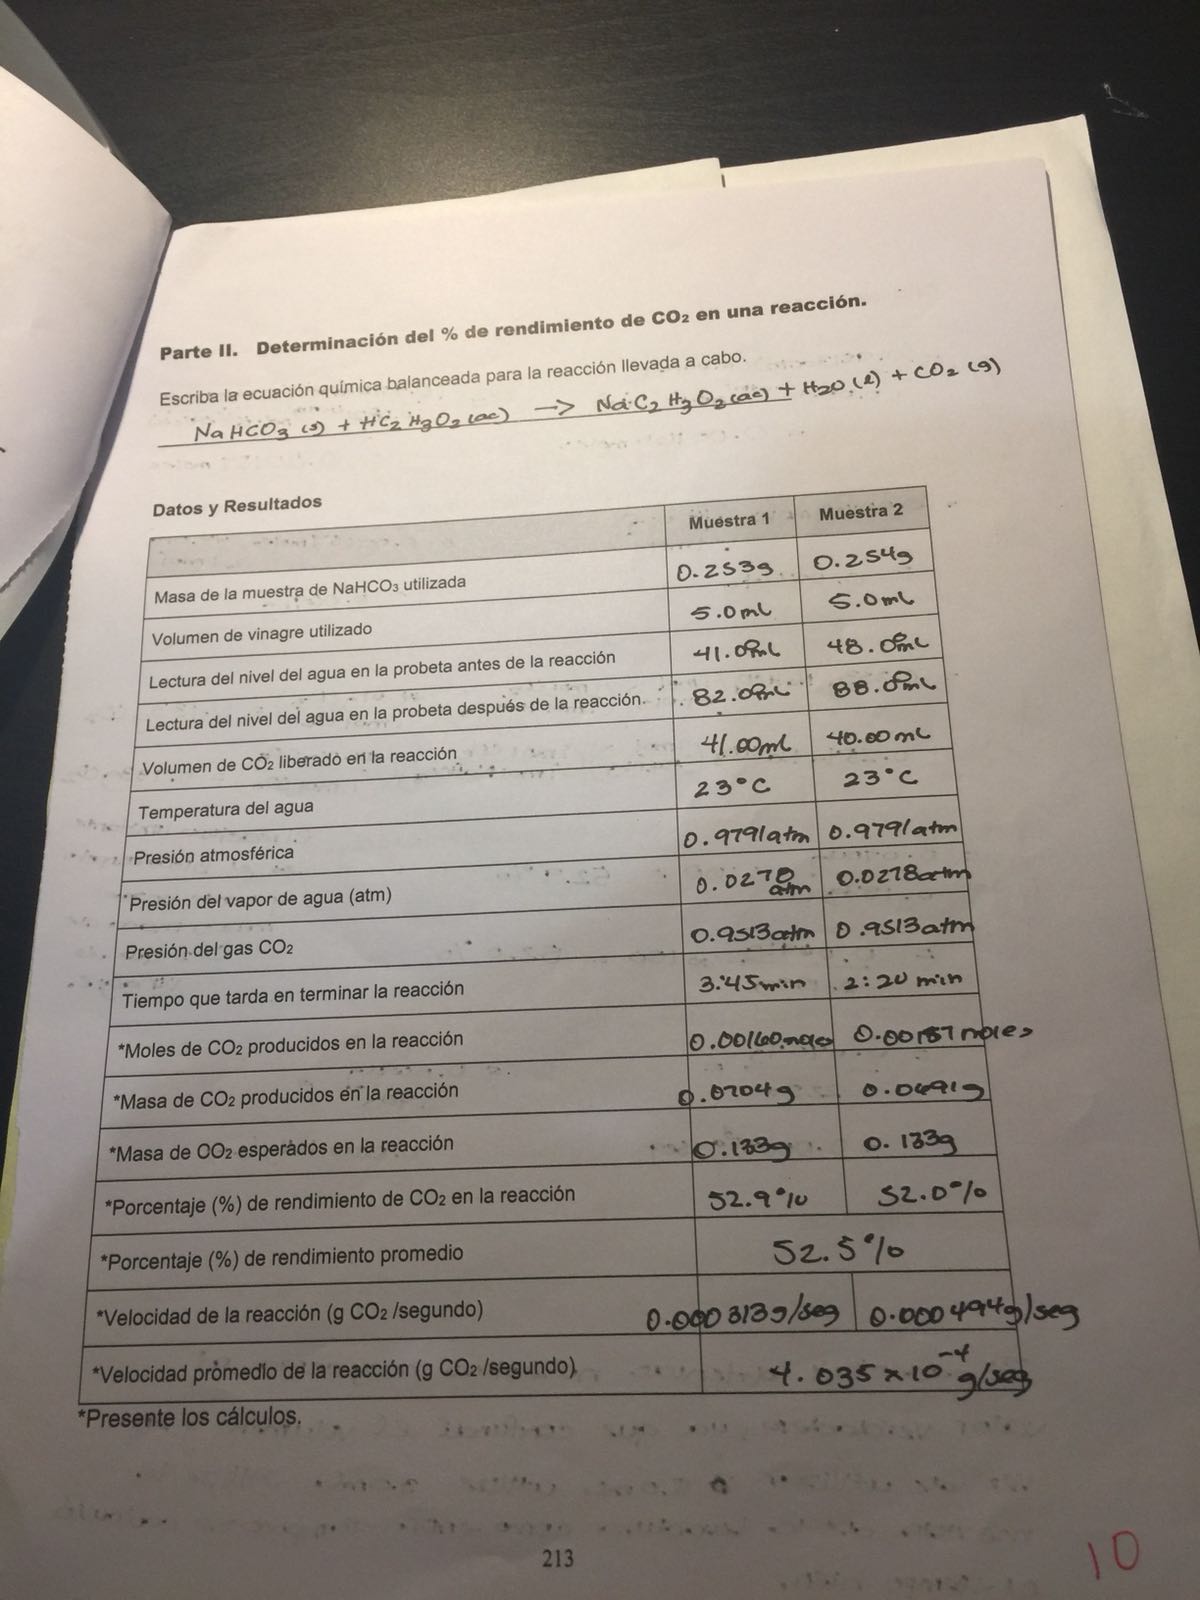 Parte II. Determinación del % de rendimiento de CO₂ en una reacción.
Escriba la ecuación química balanceada para la reacción llevada a cabo.
NaHCO₃ (s) + HC₂H₃O₂ (ac) → NaC₂H₃O₂ (ac) + H₂O (l) + CO₂ (g)
Datos y Resultados
Muestra 1 Muestra 2
Masa de la muestra de NaHCO₃ utilizada 0.253g 0.254g
Volumen de vinagre utilizado 5.0mL 5.0mL
Lectura del nivel del agua en la probeta antes de la reacción 41.00mL 48.00mL
Lectura del nivel del agua en la probeta después de la reacción. 82.00mL 88.00mL
Volumen de CO₂ liberado en la reacción 41.00mL 40.00mL
Temperatura del agua 23°C 23°C
Presión atmosférica 0.9791atm 0.9791atm
*Presión del vapor de agua (atm) 0.0278 atm 0.0278atm
Presión del gas CO₂ 0.9513atm 0.9513atm
Tiempo que tarda en terminar la reacción 3:45min 2:20 min
*Moles de CO₂ producidos en la reacción 0.00160moles 0.00157moles
*Masa de CO₂ producidos en la reacción 0.0704g 0.0691g
*Masa de CO₂ esperados en la reacción 0.133g 0.133g
*Porcentaje (%) de rendimiento de CO₂ en la reacción 52.9% 52.0%
*Porcentaje (%) de rendimiento promedio 52.5%
*Velocidad de la reacción (g CO₂ /segundo) 0.000313g/seg 0.000494g/seg
*Velocidad promedio de la reacción (g CO₂ /segundo) 4.035 x 10⁻⁴ g/seg
*Presente los cálculos.
213
10